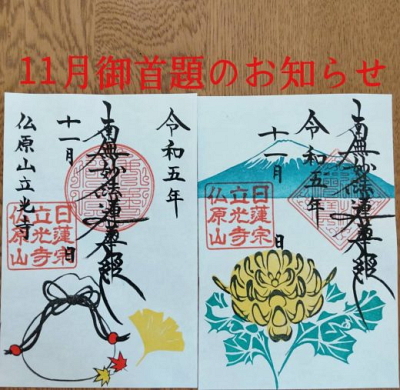 11月御首題のお知らせ
令和五年
南無妙法蓮華経
十一月 日
仏原山立光寺
日蓮宗
立光寺
仏原山
令和五年
南無妙法蓮華経
十一月 日
日蓮宗
立光寺
仏原山